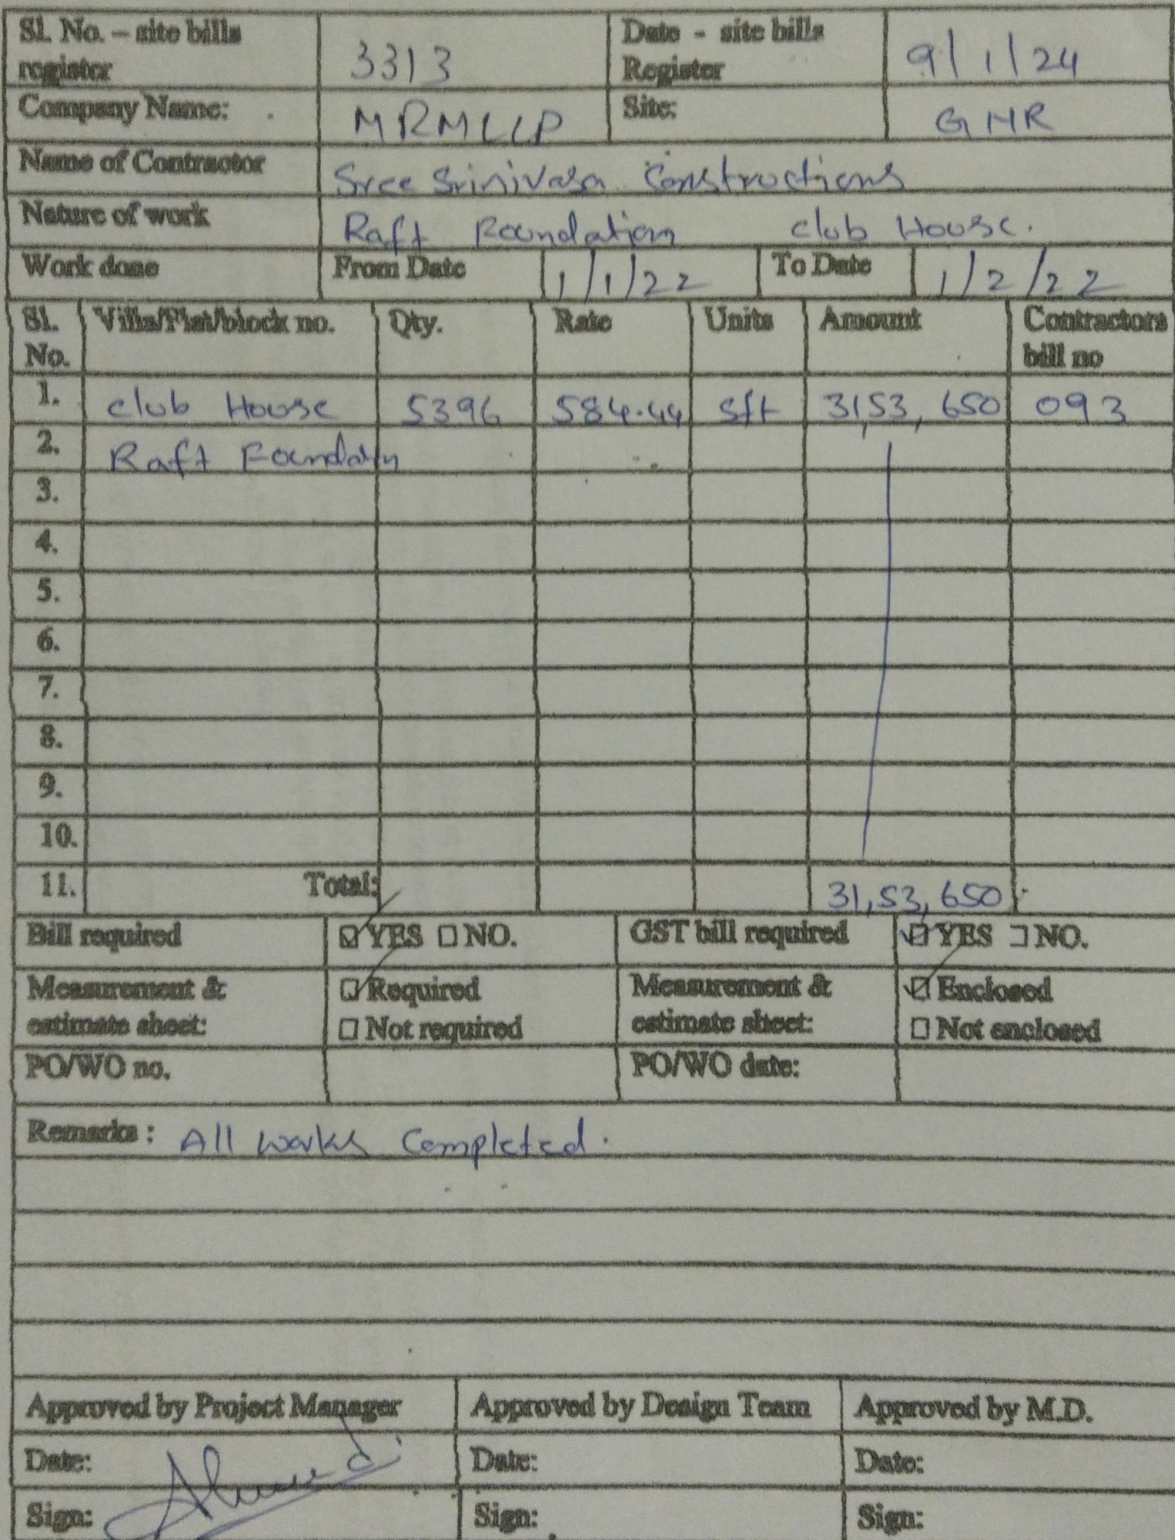 Sl. No. – site bills register 3313 Date - site bills Register 9/1/24
Company Name: MRMLLP Site: GMR
Name of Contractor Sree Srinivasa Constructions
Nature of work Raft Foundation club House.
Work done From Date 1/1/22 To Date 1/2/22
Sl. No. Villa/Flat/block no. Qty. Rate Units Amount Contractors bill no
1. club House 5396 584.44 sft 31,53,650 093
2. Raft Foundatn
3.
4.
5.
6.
7.
8.
9.
10.
11. Total: 31,53,650
Bill required ☑ YES ☐ NO. GST bill required ☑ YES ☐ NO.
Measurement & estimate sheet: ☑ Required ☐ Not required Measurement & estimate sheet: ☑ Enclosed ☐ Not enclosed
PO/WO no. PO/WO date:
Remarks : All works Completed.
Approved by Project Manager Approved by Design Team Approved by M.D.
Date: Date: Date:
Sign: Sign: Sign: